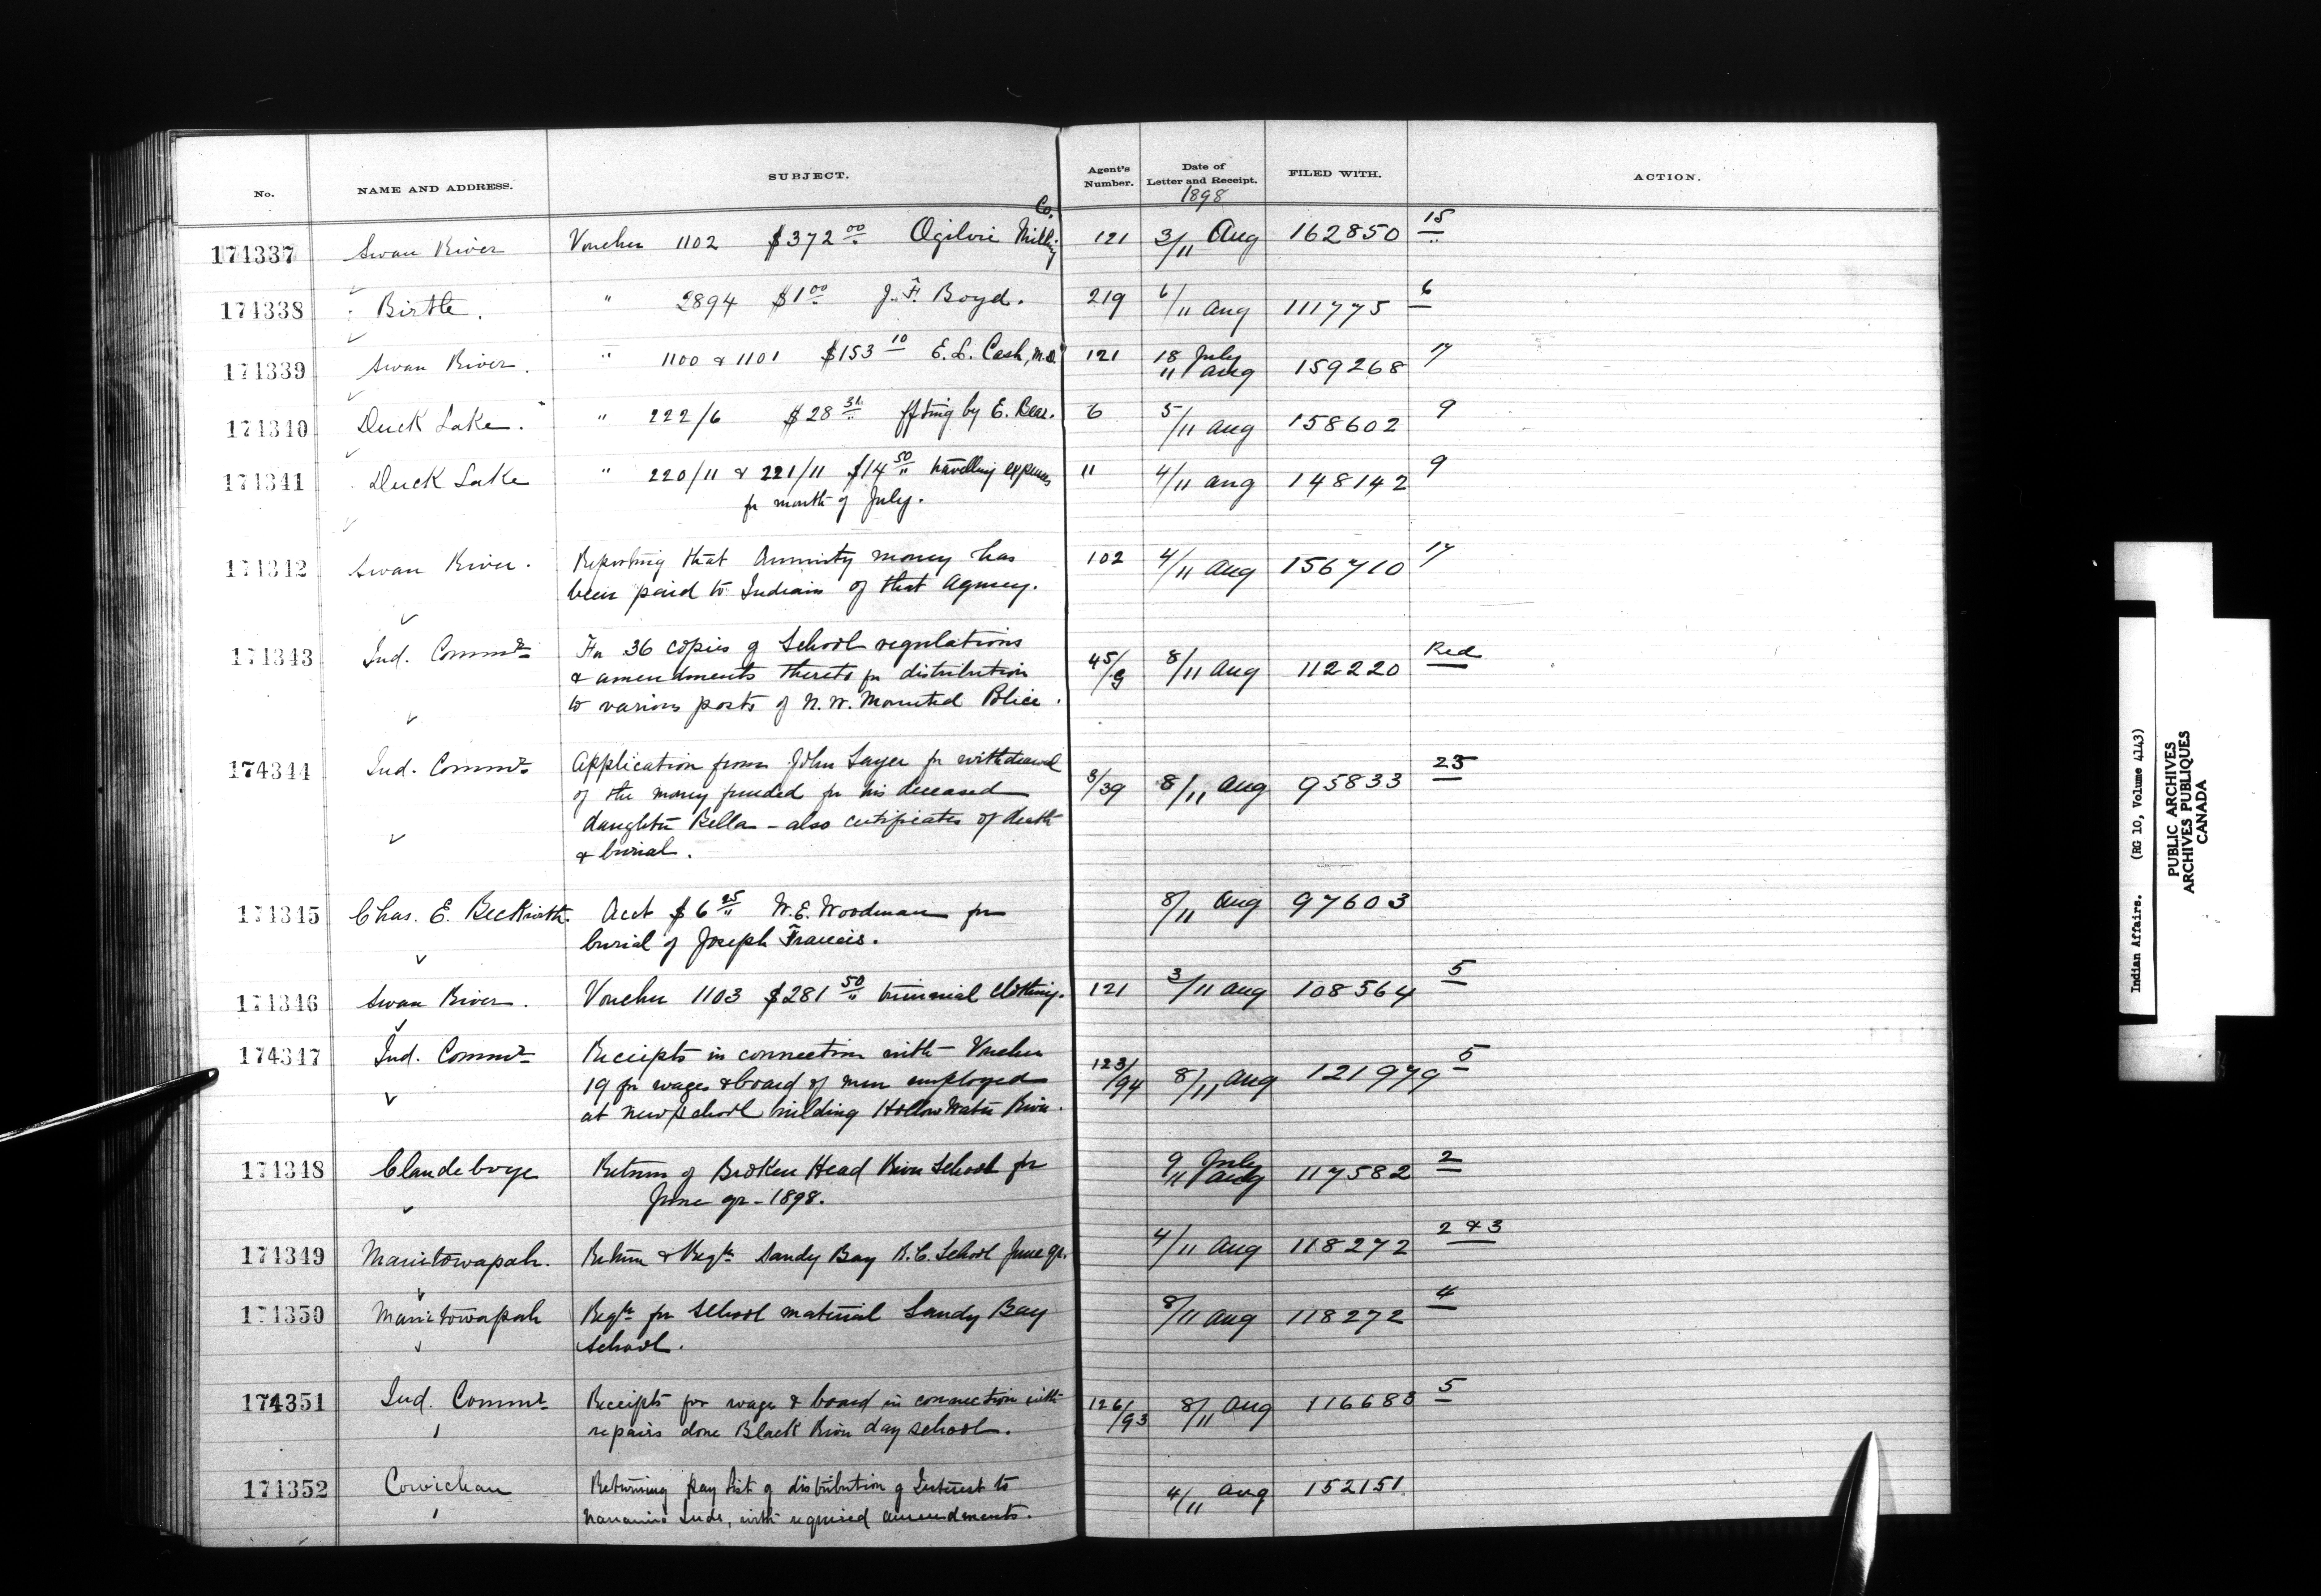 No. NAME AND ADDRESS. SUBJECT. Agent's Number. Date of Letter and Receipt. FILED WITH. ACTION.
1898
174337 Swan River Voucher 1102 $372 00 Ogilvie Milling Co. 121 3/11 Aug 162850 15
174338 Birtle. " 2894 $1 00 J. F. Boyd. 219 6/11 Aug 111775 6
174339 Swan River. " 1100 & 1101 $153 10 E. L. Cash, M.D. 121 18 July 11 Aug 159268 17
174340 Duck Lake. " 222/6 $28 31 by E. Bear. 6 5/11 Aug 158602 9
174341 Duck Lake " 220/11 & 221/11 $14 50 travelling expenses 11 4/11 Aug 148142 9
for month of July.
174342 Swan River. Reporting that Annuity money has 102 4/11 Aug 156710 17
been paid to Indians of that Agency.
174343 Ind. Commr For 36 copies of School regulations 45/g 8/11 Aug 112220 Red
& amendments thereto for distribution
to various posts of N. W. Mounted Police.
174344 Ind. Commr Application from John Sayer for withdrawal 3/39 8/11 Aug 95833 23
of the money funded for his deceased
daughter Bella - also certificates of death
& burial.
174345 Chas. E. Beckwith Acct $6 25 W. E. Woodman for 8/11 Aug 97603
burial of Joseph Francis.
174346 Swan River. Voucher 1103 $281 50 triennial clothing. 121 3/11 Aug 108564 5
174347 Ind. Commr Receipts in connection with Voucher 123/94 8/11 Aug 121979 5
19 for wages & board of men employed
at new school building Hollow Water River.
174348 Clandeboye Return of Broken Head River School for 9 July 11 Aug 117582 2
June qr - 1898.
174349 Manitowapah. Return & Reqn Sandy Bay R. C. School June qr. 4/11 Aug 118272 2 & 3
174350 Manitowapah Reqn for School material Sandy Bay 8/11 Aug 118272 4
School.
174351 Ind. Commr Receipts for wage & board in connection with 126/93 8/11 Aug 116688 5
repairs done Black River day school.
174352 Cowichan Returning pay list of distribution of Interest to 4/11 Aug 152151
Nanaimo Inds, with required amendments.
Indian Affairs. (RG 10, Volume 4143)
PUBLIC ARCHIVES
ARCHIVES PUBLIQUES
CANADA